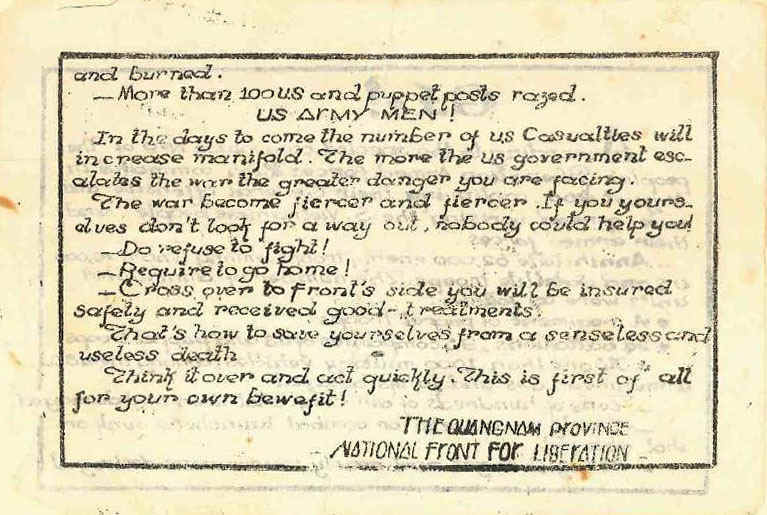 and burned.
— More than 100 US and puppet posts razed.
US ARMY MEN !
In the days to come the number of us Casualties will
increase manifold. The more the us government esc-
alates the war the greater danger you are facing.
The war become fiercer and fiercer. If you yours-
elves don't look for a way out, nobody could help you!
— Do refuse to fight!
— Require to go home!
— Cross over to Front's side you will be insured
safely and received good-treatments.
That's how to save yourselves from a senseless and
useless death
Think it over and act quickly. This is first of all
for your own benefit!
THE QUANGNAM PROVINCE
NATIONAL FRONT FOR LIBERATION